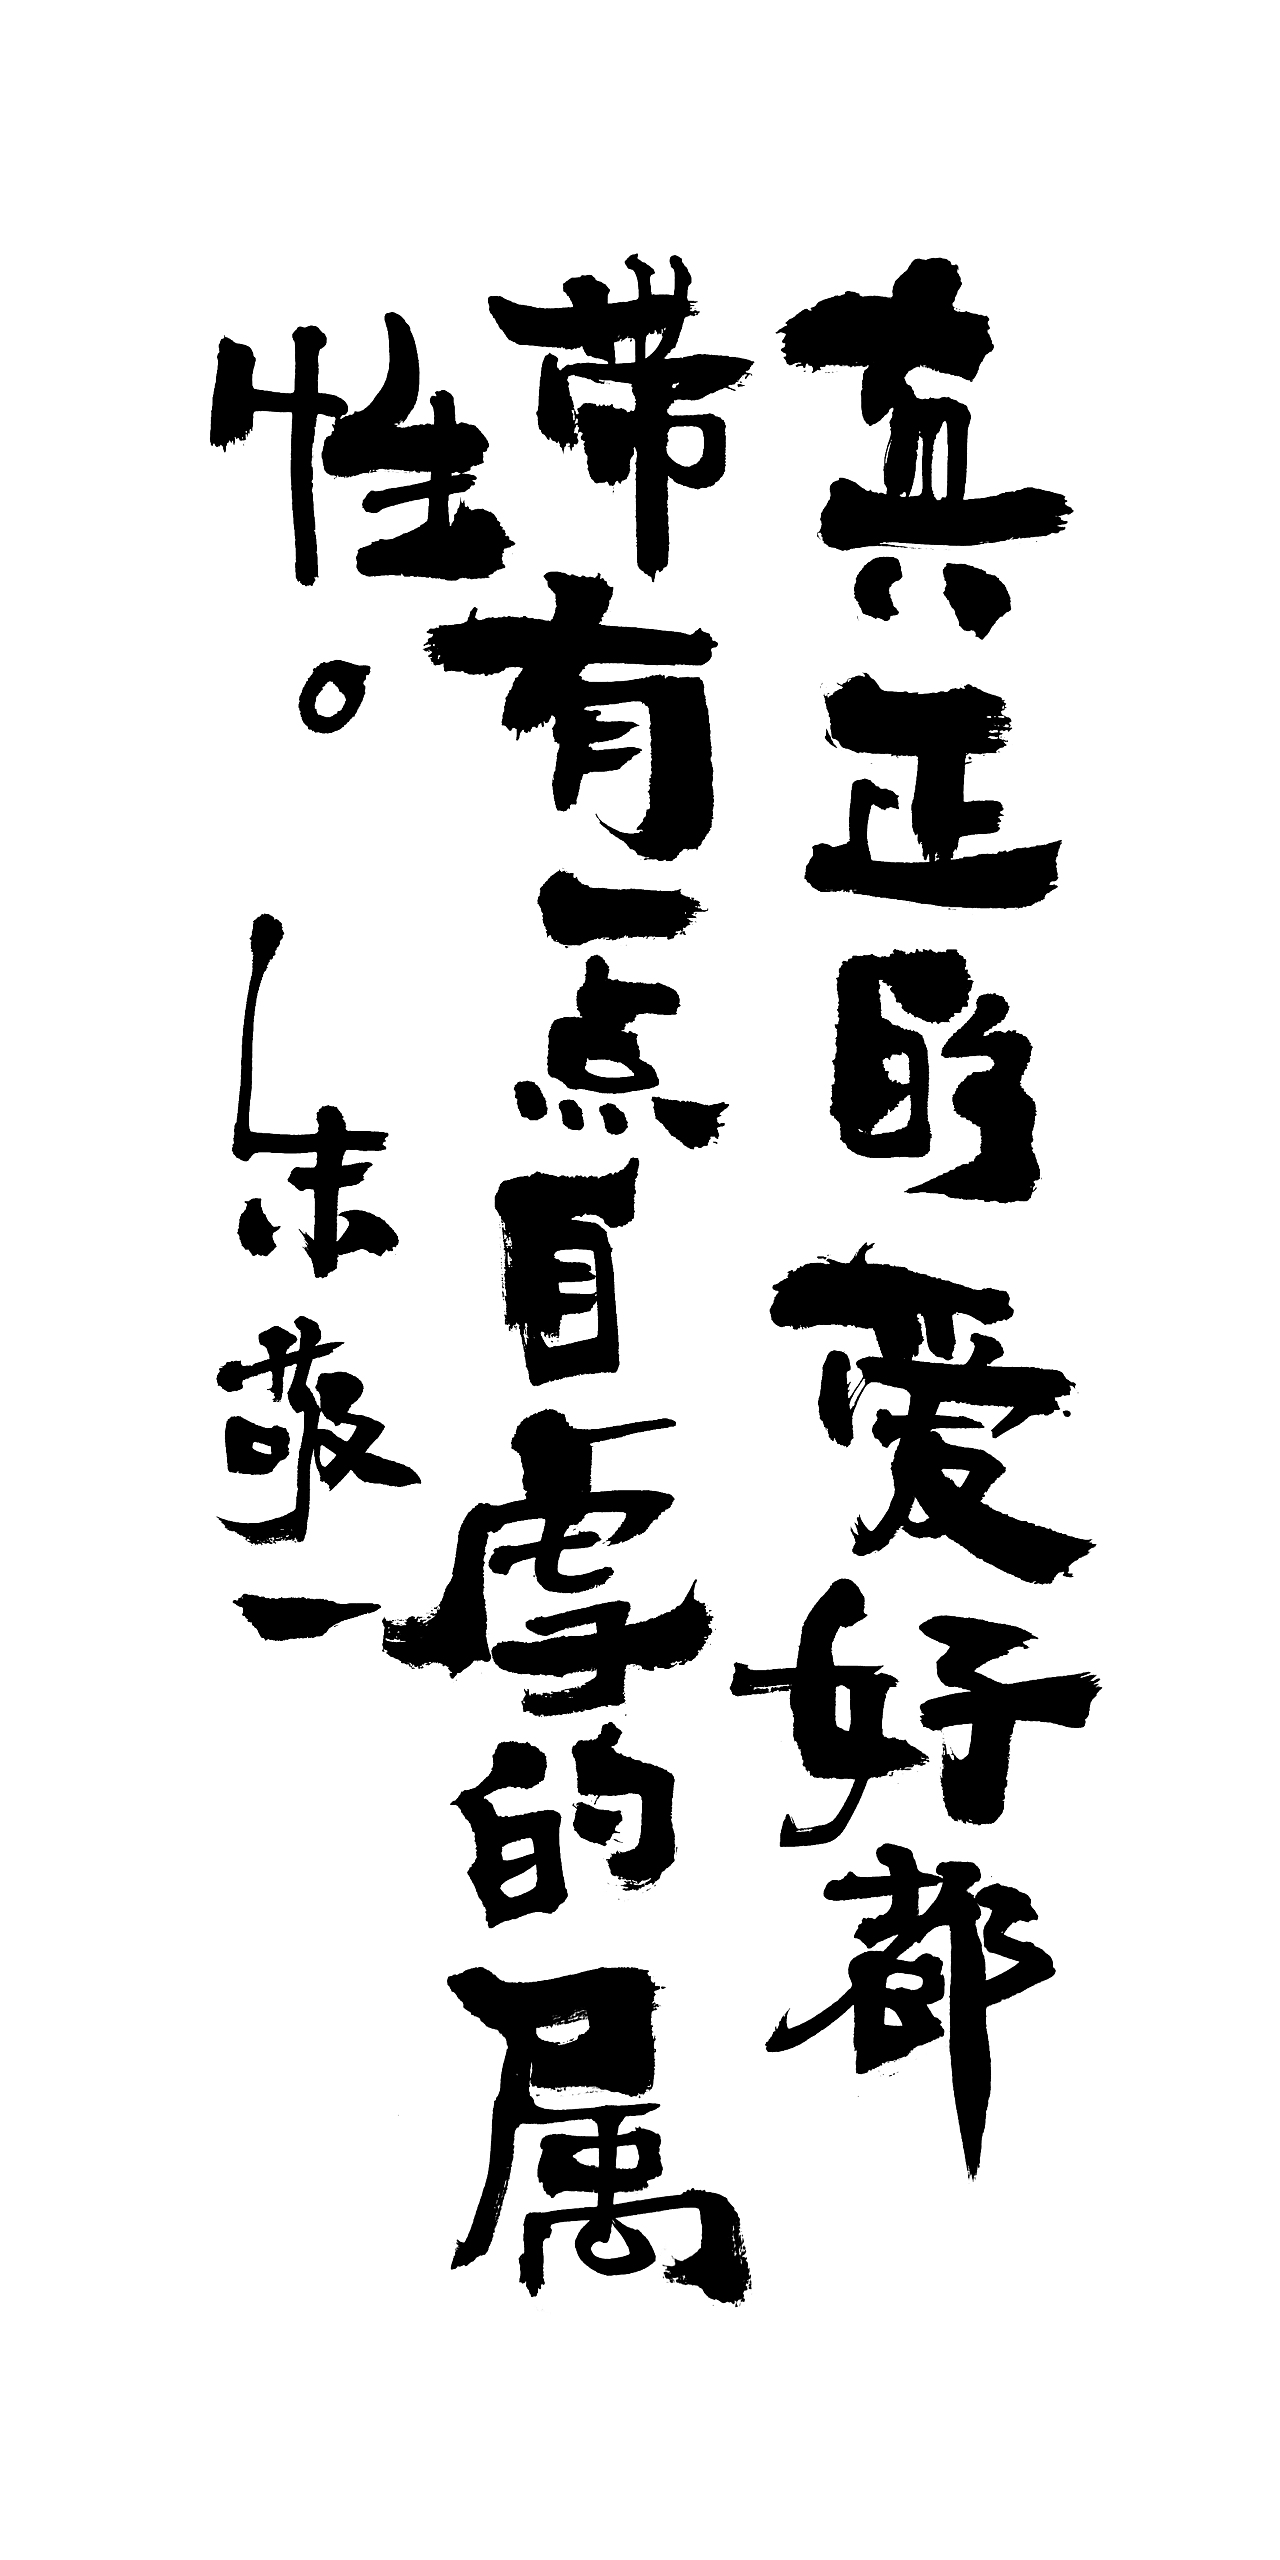 真正的爱好都
带有一点自虐的属
性。
朱敬一